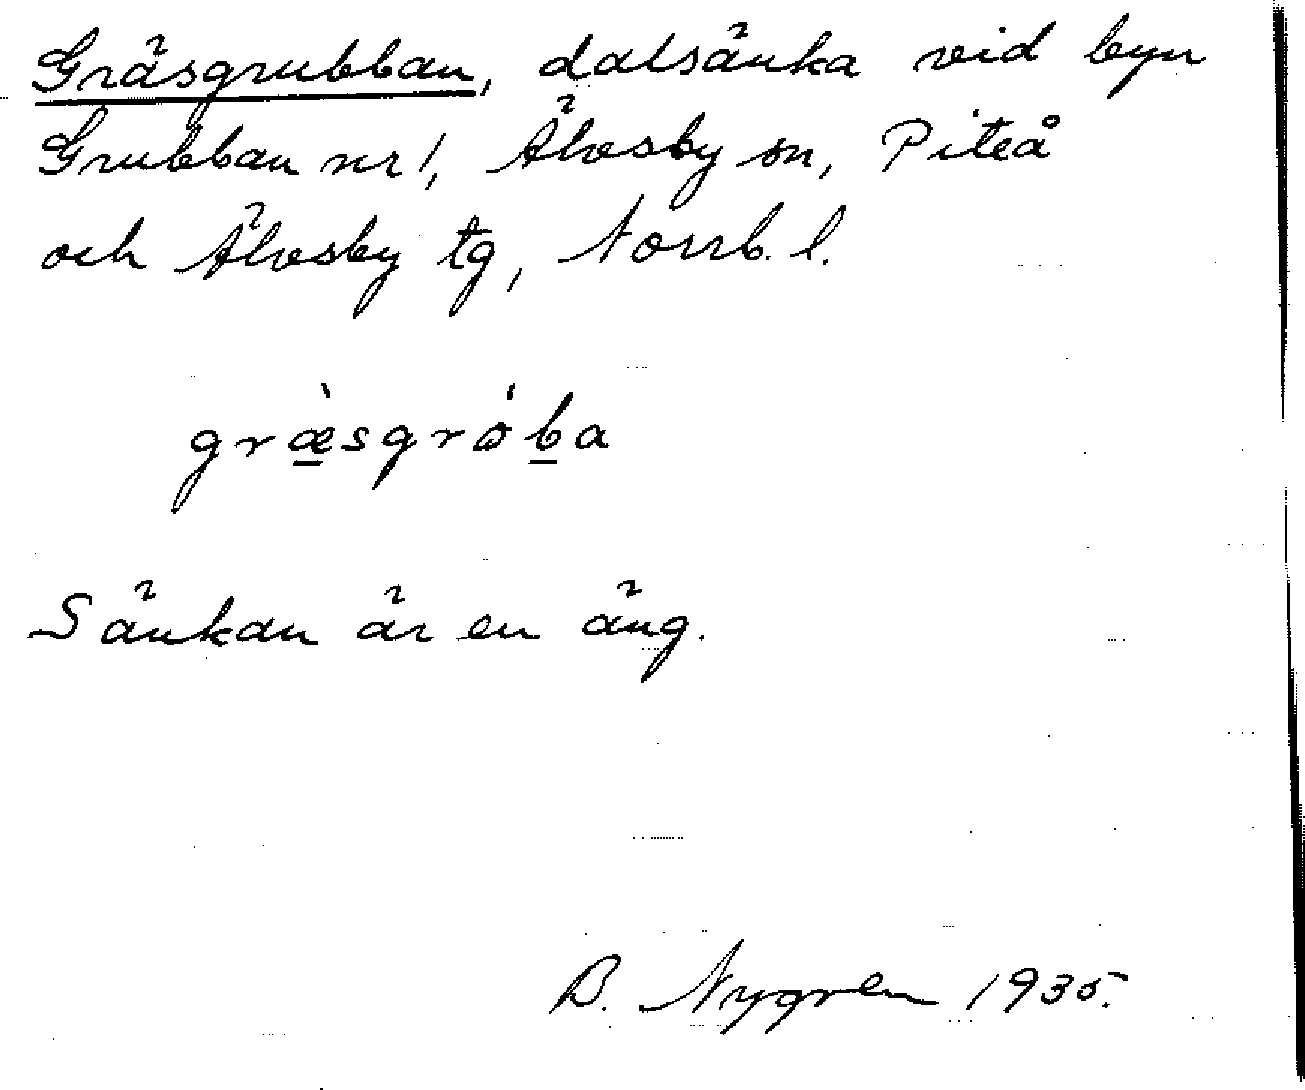 Gräsgrubban, dalsänka vid byn
Grubban nr 1, Älvsby sn, Piteå
och Älvsby tg, Norrb. l.
græ̀sgróba
Sänkan är en äng.
B. Nygren 1935.